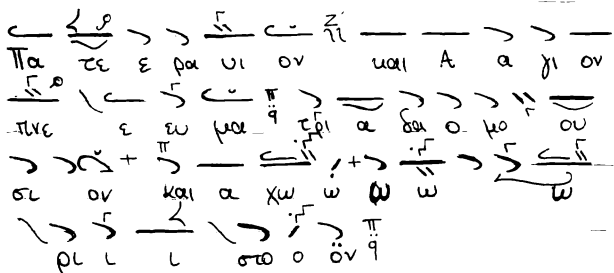 Πα τε ε ρα υι ον και Α α γι ον
πνε ε ευ μα τρι α δα ο μο ου
σι ον και α χω ω ω ω ω
ρι ι ι στο ο ον